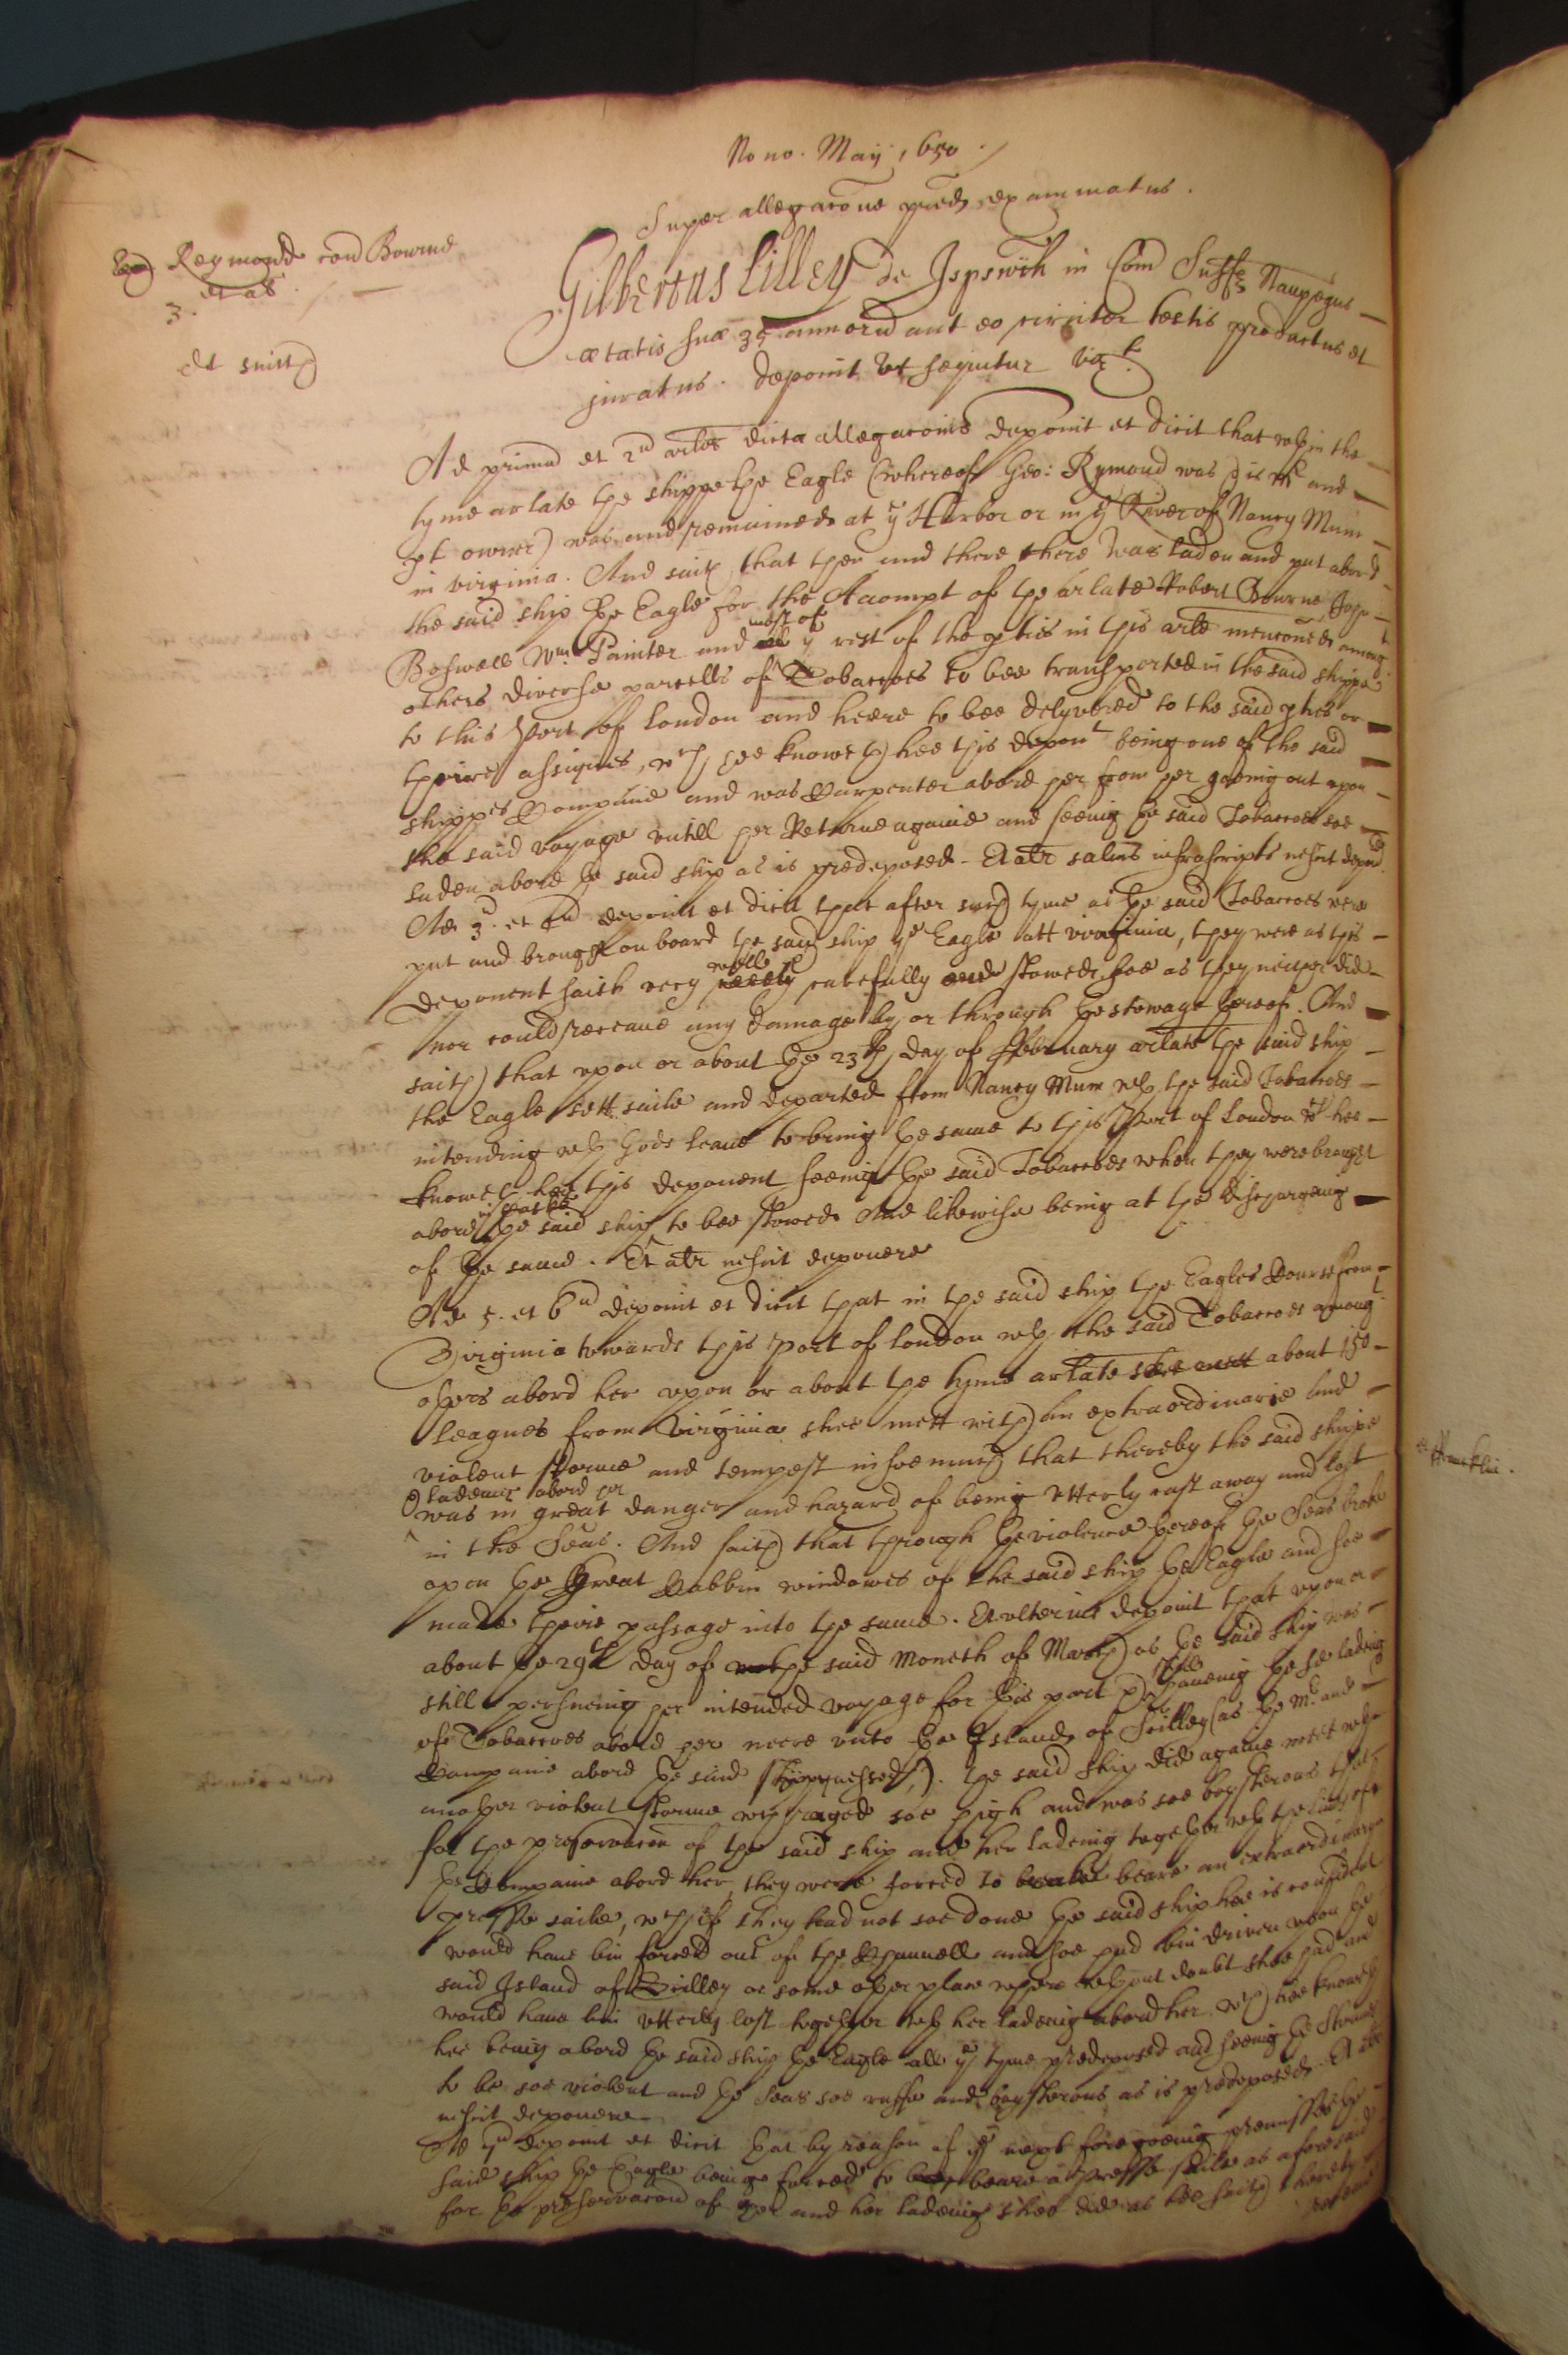 Nono. Maij 1650.
Super allegacone pred examinatus.
Reymond con Bourne
et al.
3.
Gilbertus Lilley de Ipswich in Com Suff Naupegus
ætatis suæ 35 annorū aut eo circiter testis productus et
juratus. deponit ut sequitur vizt
Ad primū et 2ū arlos dictæ allegaconis deponit et dicit that wthin the
tyme arlate the shippe the Eagle (whereof Geo: Rymond was Mr and
pt owner) was and remained at ye Harbor or in ye River of Nancy Mum
in virginia. And saith that then and there there was laden and put abord
the said ship the Eagle for the Accompt of the arlate Robert Bourne
Boswell Wm Painter and all most of ye rest of the pties in this arle menconed among
others diverse parcells of Tobaccoes to bee transported in the said shippe
to this Port of London and heere to bee delyvered to the said pties or
theire assignes, wch hee knoweth hee this depont being one of the said
shippes Companie and was Carpenter abord her from her goeing out upon
the said voyage untill her Returne againe and seeing the said Tobaccoes soe
laden abord the said ship as is predeposed. Et alr salvis infrascriptis nescit depon
Ad 3. et 4ū deponit et dicit that after such tyme as the said Tobaccoes were
put and brought on board the said ship ye Eagle att virginia, they were as this
deponent saith very well carefully and stowed, soe as they neither did
nor could receave any damage by or through the stowage thereof. And
saith that upon or about the 23th day of ffebruary arlate the said ship
the Eagle sett saile and departed from Nancy Mum wth the said Tobaccoes
intending wth Gods leave to bring the same to this Port of London wch hee
knoweth hee this deponent seeing the said Tobaccoes when they were brought
abord the said ship to bee stowed And likewise being at the dischargeing
of the same. Et alr nescit deponere
Ad 5. et 6ū deponit et dicit that in the said ship the Eagles Course from
Virginia towards this port of London wth the said Tobaccoes among
others abord her upon or about the tyme arlate shee mett about 150
leagues from Virginia shee mett with an extraordinarie and
violent storme and tempest insoemuch that thereby the said shippe
& ladeing abord her
was in great danger and hazard of being utterly cast away and lost
in the Seas. And saith that through the violence thereof the Seas broke
open the great Cabbin windowes of the said ship the Eagle and soe
made theire passage into the same. Et ulterius deponit that upon or
about the 29th day of the said Moneth of March as the said ship was
still persueing her intended voyage for this port haveing the sd ladeing
of Tobaccoes abord her neere unto the Islands of Scilley (as the Mr and
Companie abord the said ship ghessed). the said ship did againe meet wth
another violent storme wch raged soe high and was soe boysterous that
for the preservacon of the said ship and her ladeing together wth the lives of
the Companie abord her, they were forced to beare an extraordinary
presse saile, wch if they had not soe done the said ship hee is confident
would have bin forced out of the Channell and soe had bin driven upon the
said Island of Scilley or some other place where wthout doubt shee had and
would have bin utterly lost together wth her ladeing abord her. wch hee knoweth
hee being abord the said ship the Eagle all ye tyme predeposed and seeing the Storme
to be soe violent and the Seas soe ruffe and boysterous as is predeposed. Et alr
nescit deponere
Ad 7ū deponit et dicit that by reason of ye next foregoeing premisses the
said ship the Eagle being forced to beare a presse saile as aforesaid
for the preservacon of her and her ladeing shee did as hee saith thereby